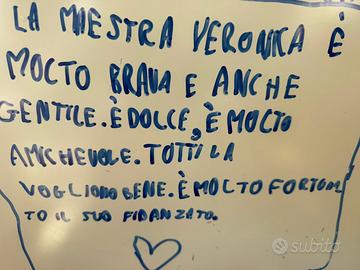 LA MIESTRA VERONICA È
MOCTO BRAVA E ANCHE
GENTILE. È DOLCE, È MOCTO
AMICHEVOLE. TOTTI LA
VOGLIONO BENE. È MOLTO FORTONA
TO IL SUO FIDANZATO.
subito